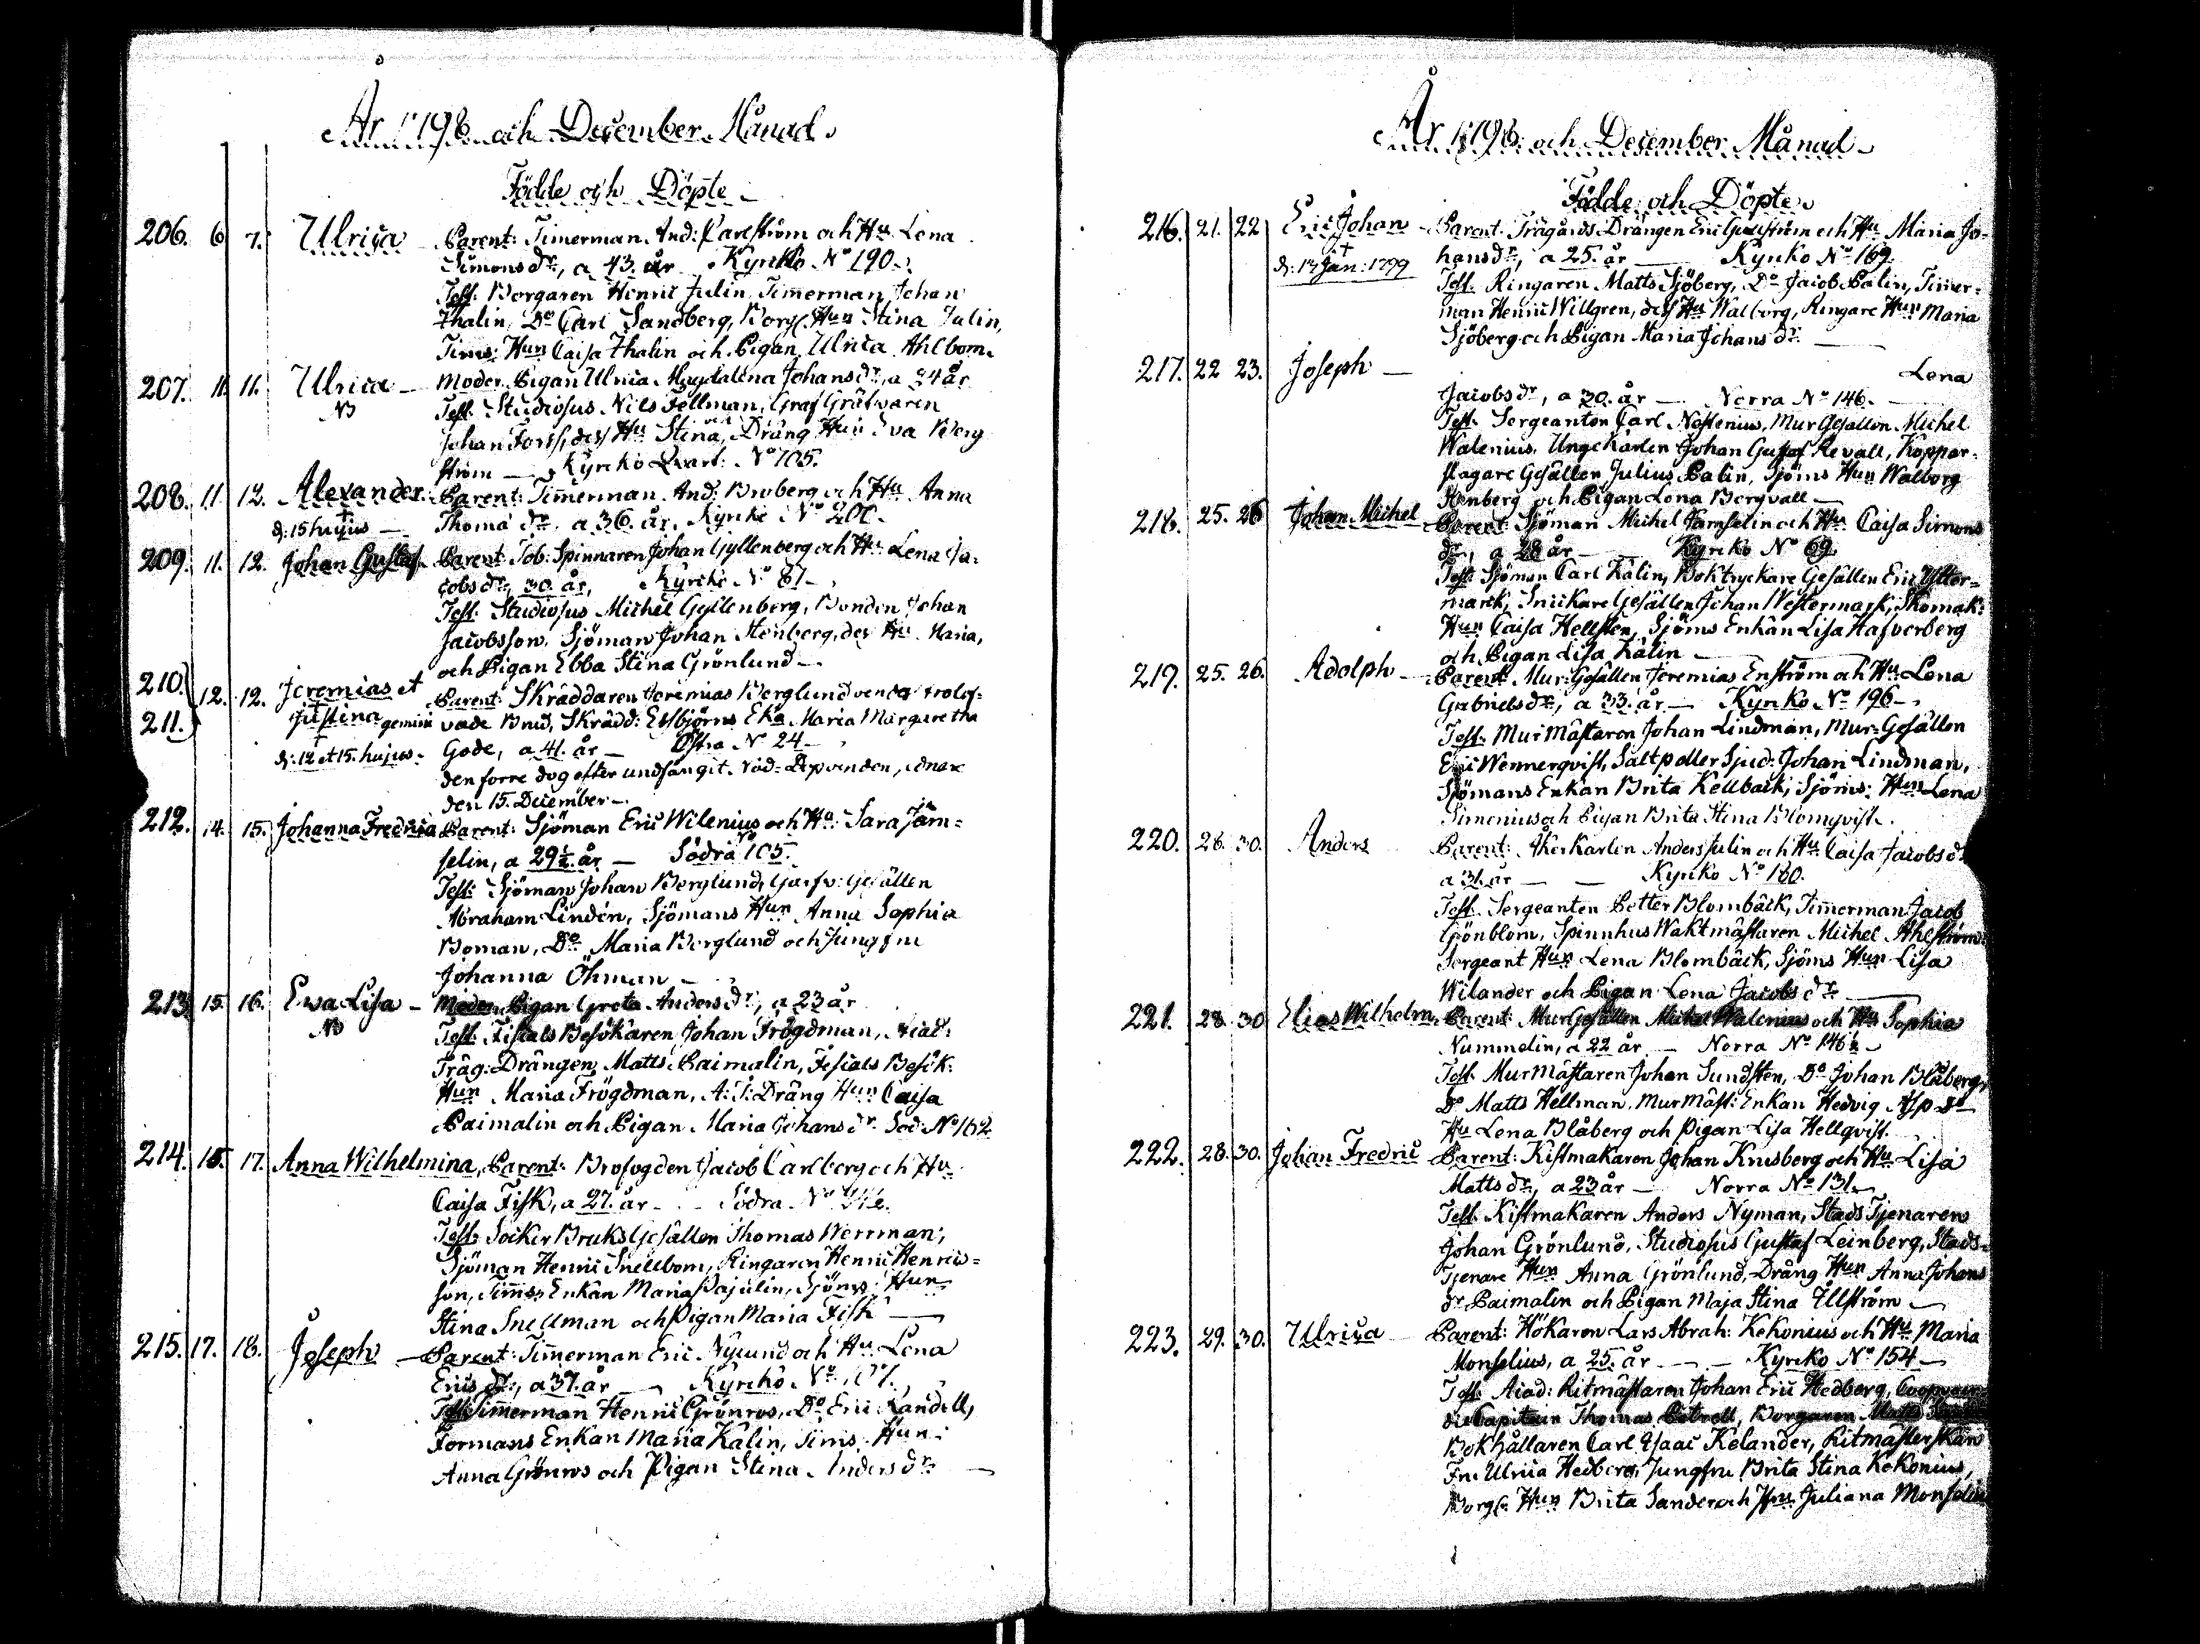 År 1798 och December Månad.
Födde och Döpte
206. 6 7. Ulrica Parent: Timerman And: Carlström och Hu Lena
Simonsdr, a 43. år Kyrko No 190.
Test. Borgaren Henric Julin, Timerman Johan
Thalin, Do Carl Sandberg, Borgs Hun Stina Julin,
Tims: Hun Caisa Thalin och Pigan Ulrica Ahlbom.
207. 11. 11. Ulrica Moder Pigan Ulrica Magdalena Johansdr, a 24 år
NB Test. Studiosus Nils Fellman, Graf Gräfwaren
Johan Forss, dess Hu Stina, och Dräng Hun Eva Berg
ström Kyrko Qvart: No 105.
208. 11. 12. Alexander Parent: Timerman And: Broberg och Hu Anna
d: 15 hujus Thomædr. a 36. år. Kyrko No 200.
209. 11. 12. Johan Gustaf Parent: Tob: Spinnaren Johan Gyllenberg och Hu Lena Ja-
cobsdr, 30. år, Kyrko No 87.
Test. Studiosus Michel Gyllenberg, Bonden Johan
Jacobsson, Sjöman Johan Stenberg, des Hu Maria,
och Pigan Ebba Stina Grönlund.
210. 211. 12. 12. Jeremias et Parent: Skräddaren Jeremias Berglund och des trolof-
Justina gemini vade Brud, Skrädd: Essbjörns Eka Maria Margaretha
d: 12 et 15. hujus. Gode, a 41. år Östra No 24
den förre dog efter undfångit Nöd-Döp
den 15. December
212. 14. 15. Johanna Fredrica Parent: Sjöman Eric Wilenius och Hu Sara Jäm-
selin, a 29½ år Södra No 105.
Test: Sjöman Johan Berglund, Garfv: Gesällen
Abraham Lindén, Sjömans Hun Anna Sophia
Boman, Do Maria Berglund och Jungfru
Johanna Öhman
213. 15. 16. Ewa Lisa Moder Pigan Greta Andersdr, a 23 år
NB Test: Fiscals Besökaren Johan Frögdman, Acad:
Träg: Drängen Matts Paimalin, Fiscals Besök:
Hun Maria Frögdman, A: T: Dräng Hun Caisa
Paimalin och Pigan Maria Johansdr Söd: No 162
214. 15. 17. Anna Wilhelmina Parent: Brofogden Jacob Carlberg och Hu
Caisa Fisk, a 27. år Södra No
Test: Socker Bruks Gesällen Thomas Werrman,
Sjöman Henric Snellbom, Ringaren Henric Henrics-
son, Tims: Enkan Maria Pajulin, Sjöms: Hun
Stina Snellman och Pigan Maria Fisk
215. 17. 18. Joseph Parent: Timerman Eric Nylund och Hu Lena
Ericsdr, a 37. år Kyrko No
Test. Timerman Henric Grönroos, Do Eric Randell,
Formans Enkan Maria Kalin, Tims: Hun
Anna Grönroos och Pigan Stina Andersdr
År 1798 och December Månad
Födde och Döpte
216. 21. 22 Eric Johan Parent: Trägårds Drängen Eric och Hu Maria Jo-
d: 14 Jan: 1799 hansdr, a 25. år Kyrko No 169.
Test. Ringaren Matts Sjöberg, Do Jacob Palin, Timer-
man Henric Willgren, dess Hu Walborg, Ringare Hun Maria
Sjöberg och Pigan Maria Johansdr.
217. 22 23. Joseph Lena
Jacobsdr, a 30. år Norra No 146.
Test. Sergeanten Carl Nostenius, Mur Gesällen Michel
Walenius, Unge Karlen Johan Gustaf Revall, Koppar-
slagare Gesällen Julius Palin, Sjöms Hun Walborg
Stenberg och Pigan Lena Bergvall
218. 25. 26 Johan Michel Parent: Sjöman Michel Jamselin och Hu Caisa Simons
dr, a 28 år Kyrko No 69.
Test: Sjöman Carl Kalin, Boktryckare Gesällen Eric Ytter-
mark, Snickare Gesällen Johan Westermark, Skomak:
Hun Caisa Hellsten, Sjöms Enkan Lisa Hafverberg
och Pigan Lisa Kalin
219. 25. 26. Adolph Parent: Mur: Gesällen Jeremias Enström och Hu Lena
Gabrielsdr, a 33. år Kyrko No 196
Test. Mur Mästaren Johan Lindman, Mur: Gesällen
Eric Wennerqvist, Saltpetter Sjud: Johan Lindman,
Sjömans Enkan Brita Kellback, Sjöms: Hun Lena
Simenius och Pigan Brita Stina Blomqvist.
220. 28. 30. Anders Parent: Åker Karlen Anders Julin och Hu Caisa Jacobsdr
a 31. år Kyrko No 180.
Test. Sergeanten Petter Blombäck, Timerman Jacob
Grönblom, Spinnhus Waktmästaren Michel Ahlström,
Sergeant Hun Lena Blombäck, Sjöms Hun Lisa
Wilander och Pigan Lena Jacobsdr
221. 28. 30 Elias Wilhelm Parent: Mur Gesällen Michel Walenius och Hu Sophia
Nummelin, a 22 år Norra No 146½
Test. Mur Mästaren Johan Sundsten, Do Johan Blåberg,
Do Matts Hellman, Mur Mäst: Enkan Hedvig
Hu Lena Blåberg och Pigan Lisa Hellqvist.
222. 28. 30. Johan Fredric Parent: Kistmakaren Johan Krusberg och Hu Lisa
Mattsdr, a 23 år Norra No 131.
Test. Kistmakaren Anders Nyman, Stads Tjenaren
Johan Grönlund, Studiosus Gustaf Leinberg, Stads-
Tjenare Hun Anna Grönlund, Dräng Hun Anna Johans
dr Paimalin och Pigan Maja Stina Ullström
223. 29. 30. Ulrica Parent: Hökaren Lars Abrah: Kekonius och Hu Maria
Monselius, a 25. år Kyrko No 154
Test: Acad: Ritmästaren Johan Eric Hedberg, Coopvaer-
die Capitain Thomas Petrell, Borgaren
Bokhållaren Carl Isaac Kelander, Ritmästerskan
Fru Ulrica Hedberg, Jungfru Brita Stina Kekonius,
Borgs: Hun Brita Sander och Jfru Juliana Monselius